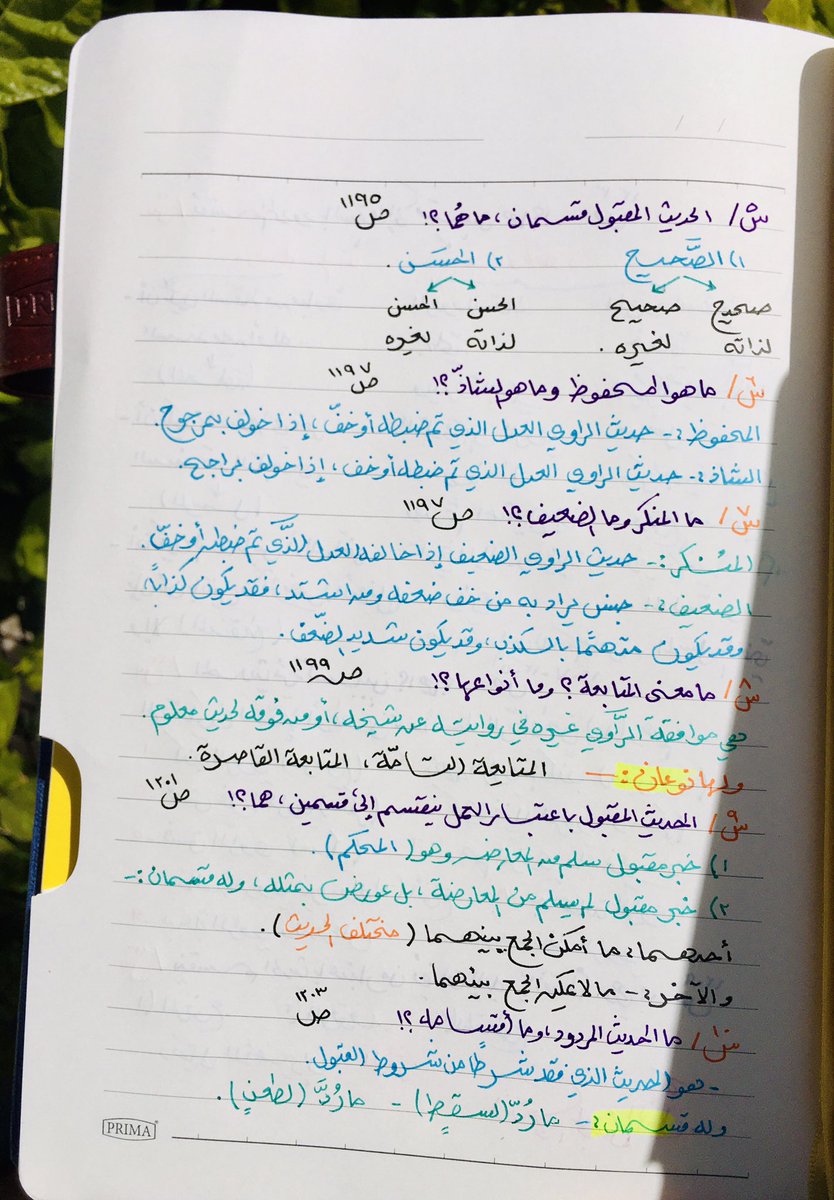 س٥/ الحديث المقبول قسمان، ما هُما؟! ص١١٩٥
١) الصَّحيح ٢) الحسَن.
صحيح لذاته صحيح لغيره. الحسن لذاته الحسن لغيره
س٦/ ما هو المحفوظ وما هو الشاذّ؟! ص١١٩٧
المحفوظ:- حديث الراوي العدل الذي تمّ ضبطه أو خفّ، إذا خولف بمرجوح.
الشاذ:- حديث الراوي العدل الذي تمّ ضبطه أو خف، إذا خولف براجح.
س٧/ ما المنكر وما الضعيف؟! ص١١٩٧
المُنكر:- حديث الراوي الضعيف إذا خالفه العدل الذَّي تمّ ضبطه أو خفّ.
الضعيف:- جنس يراد به من خف ضعفه ومن اشتد، فقد يكون كذابًا،
وقد يكون متهمًا بالكذب، وقد يكون شديد الضّعف.
س٨/ ما معنى المتابعة؟ وما أنواعها؟! ص١١٩٩
هي موافقة الرَّاوي غيره في روايته عن شيخه، أو من فوقه لحديث معلوم.
ولها نوعان:- المتابعة التامّة، المتابعة القاصرة.
س٩/ الحديث المقبول باعتبار العمل ينقسم إلى قسمين، هما؟! ص١٢٠١
١) خبر مقبول سلم من المعارضة وهو (المحكم).
٢) خبر مقبول لم يسلم من المعارضة، بل عورض بمثله، وله قسمان:-
أحدهما: ما أمكن الجمع بينهما (مختلف الحديث).
والآخر:- ما لا يمكن الجمع بينهما.
س١٠/ ما الحديث المردود، وما أقسامه؟! ص١٢٠٣
- هو الحديث الذي فقد شرطًا من شروط القبول.
وله قسمان:- ما رُدّ (لسقطٍ) - ما رُدَّ (لطعنٍ).
PRIMA